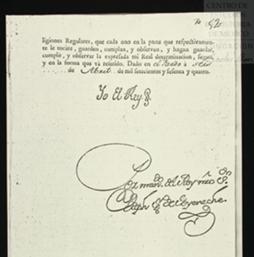 CENTRO DE
DE MÉXICO
52
ligiones Regulares, que cada uno en la parte que respectivamente
le tocare, guarden, cumplan, y observen, y hagan guardar,
cumplir, y observar la expresada mi Real determinacion, segun,
y en la forma que vá referido. Dado en el Pardo à
de Abril de mil setecientos y setenta y quatro.
Yo El Rey
Por mandº. del Rey nrõ Sr.